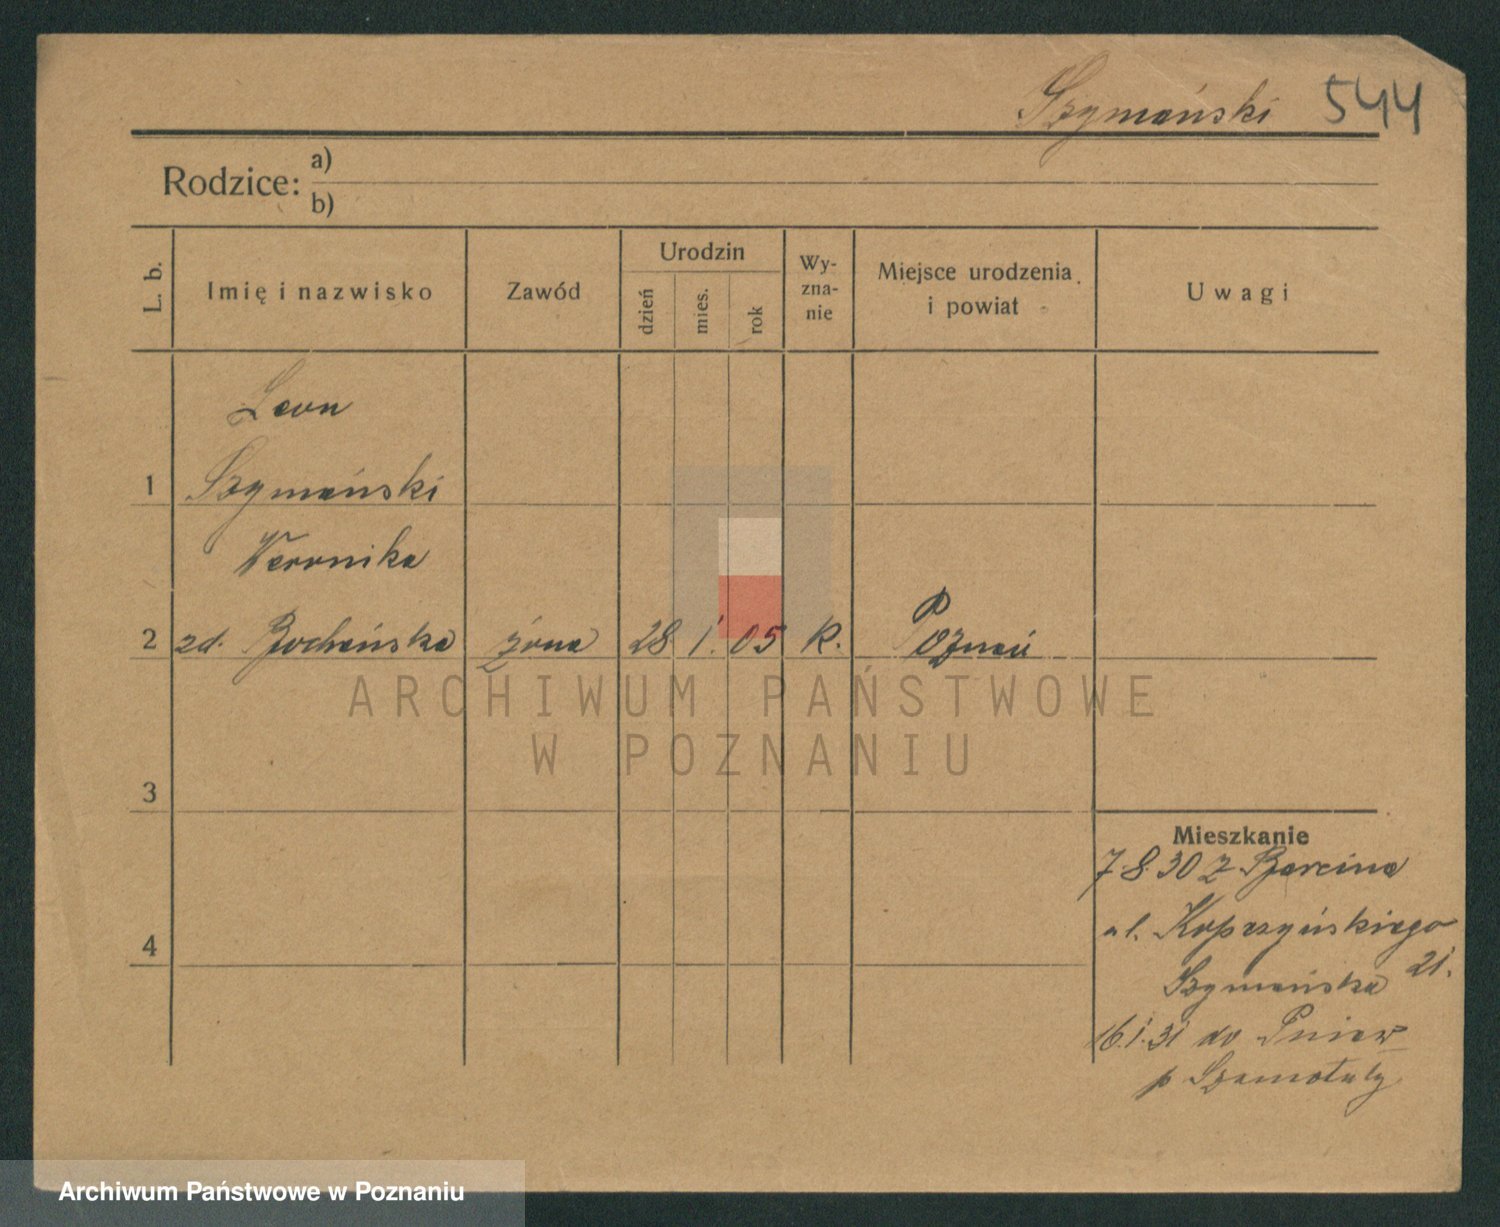 Szymański 544
Rodzice: a)
b)
L. b.
Imię i nazwisko
Zawód
Urodzin
dzień
mies.
rok
Wy-
zna-
nie
Miejsce urodzenia
i powiat
Uwagi
Leon
1 Szymański
Weronika
2 zd. Bocheńska żona 28 1. 05 k. Poznań
3
4
Mieszkanie
7.8.30 z Barcina
ul. Kopczyńskiego
21.
Szymańska
16.1.31 do Pniew
p Szamotuły
ARCHIWUM PAŃSTWOWE
W POZNANIU
Archiwum Państwowe w Poznaniu